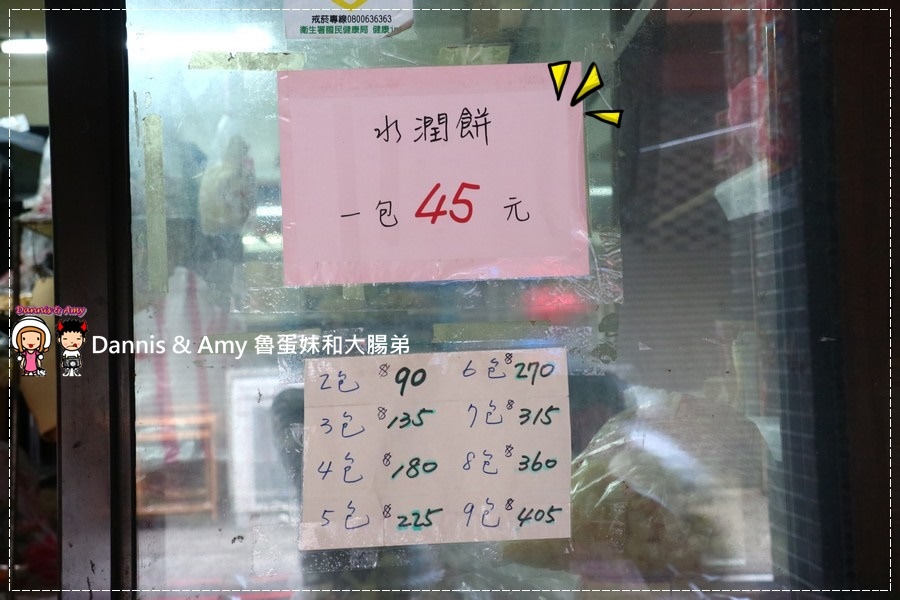 戒菸專線0800636363
衛生署國民健康局 健康
水潤餅
一包 45 元
Dannis & Amy
Dannis & Amy 魯蛋妹和大腸弟
2包 $90 6包 $270
3包 $135 7包 $315
4包 $180 8包 $360
5包 $225 9包 $405